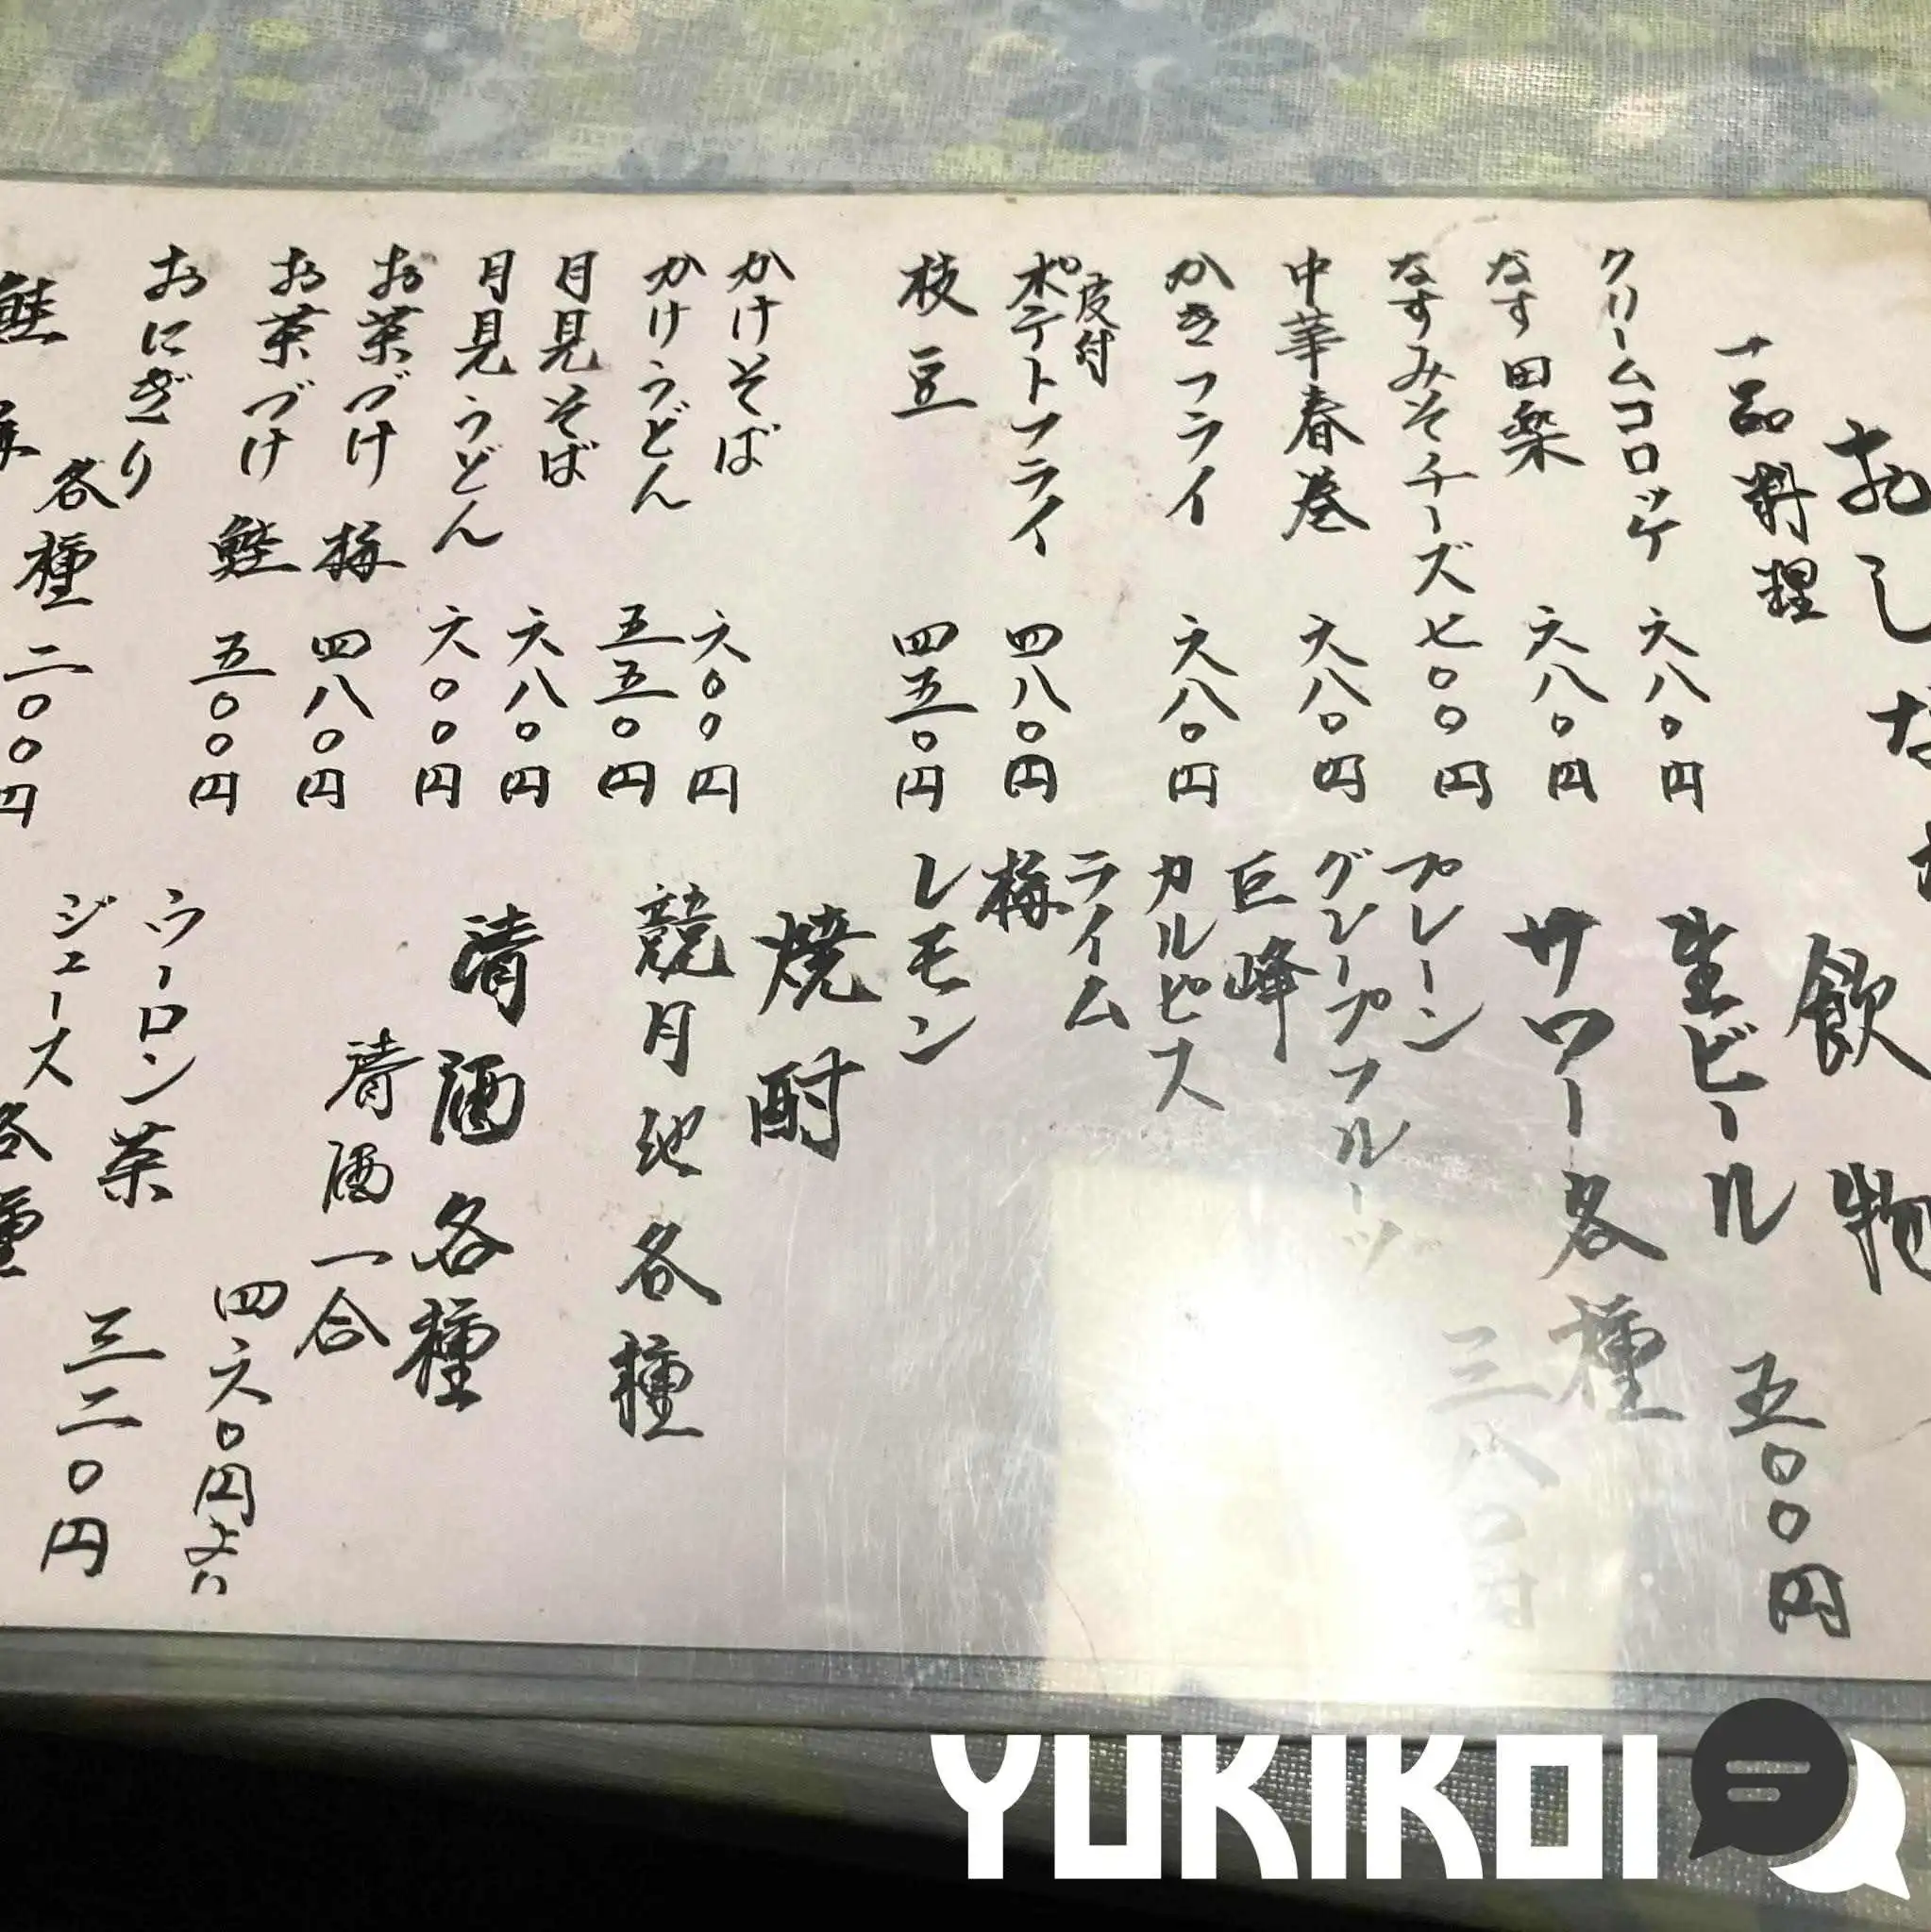 おしながき
一品料理
クリームコロッケ 六八〇円
なす田楽 六八〇円
なすみそチーズ 七〇〇円
中華春巻 六八〇円
かきフライ 六八〇円
皮付
ポテトフライ 四八〇円
枝豆 四五〇円
かけそば 六〇〇円
かけうどん 五五〇円
月見そば 六八〇円
月見うどん 六〇〇円
お茶づけ 梅 四八〇円
お茶づけ 鮭 五〇〇円
おにぎり
各種 二〇〇円
鮭
飲物
生ビール 五〇〇円
サワー各種
三八〇円
プレーン
グレープフルーツ
巨峰
カルピス
ライム
梅
レモン
焼酎
競月 他 各種
清酒 各種
清酒一合
四六〇円より
ウーロン茶
三二〇円
ジュース各種
YUKIKOI